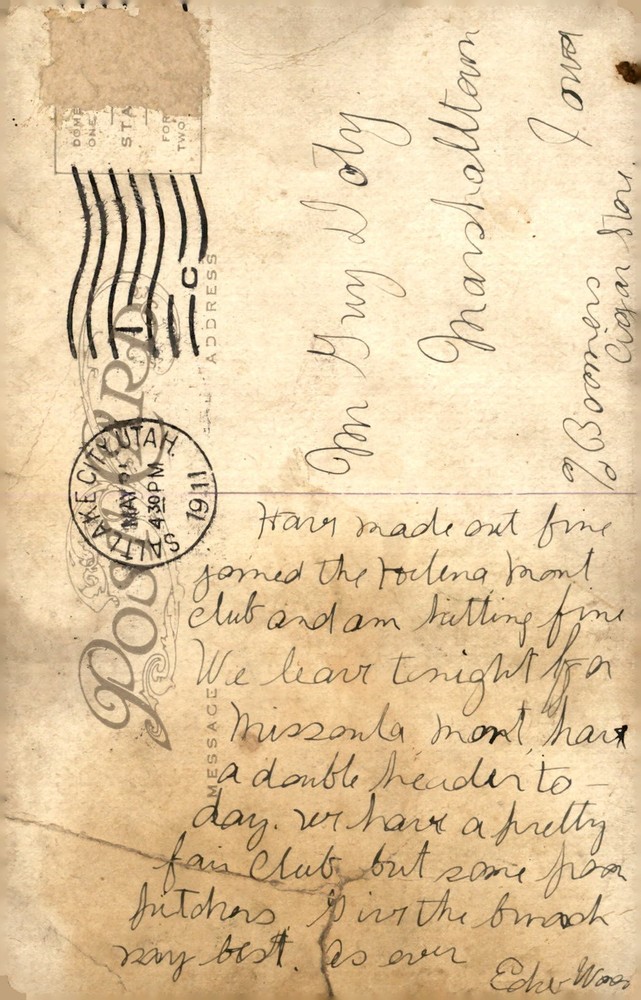 DOME
ONE
STA
FOR
TWO
C
SALT LAKE CITY, UTAH.
MAY
430PM
1911
POST CARD
ADDRESS
MESSAGE
Mr Guy Doty
Marshalltown
Iowa
Cigar Stor.
Have made out fine
joined the Helena, Mont
club and am hitting fine
We leave tonight for
Missoula Mont, have
a double header to-
day. We have a pretty
fair Club but some poor
pitchers Give the bunch
my best. As ever